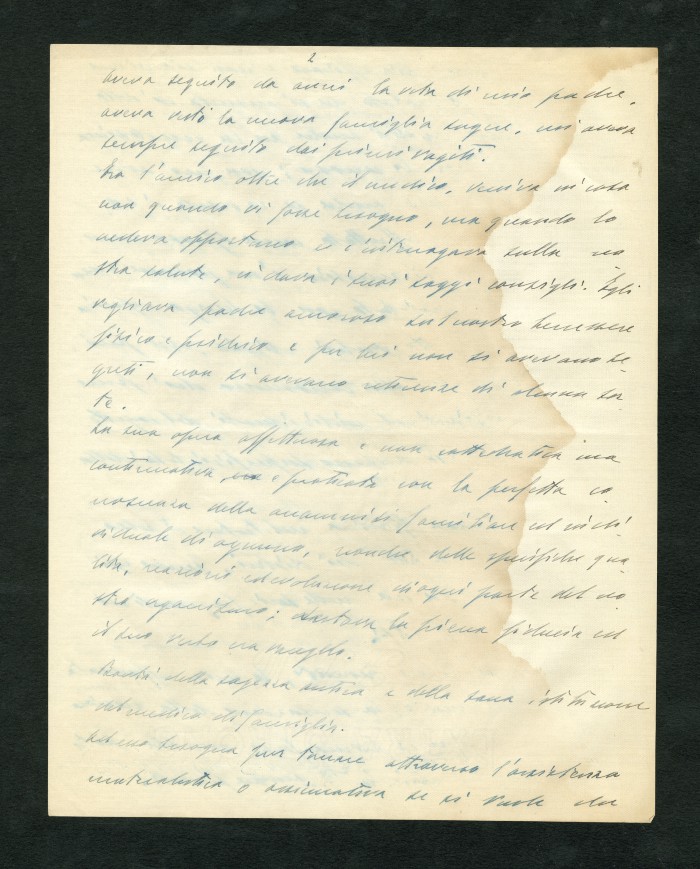 2
aveva seguito da anni la vita di mio padre,
aveva visto la nuova famiglia sorgere, noi aveva
sempre seguito dai primi vagiti.
Era l'amico oltre che il medico, veniva in casa
non quando vi fosse bisogno, ma quando lo
vedeva opportuno e c'interrogava sulla no
stra salute, ci dava i suoi saggi consigli. Egli
vegliava padre amoroso sul nostro benessere
fisico e psichico e per lui non si avevano se
greti, non si avevano reticenze di alcuna sor
te.
La sua opera affettuosa e non cattedratica ma
continuativa, e protratta con la perfetta co
noscenza della anamnesi familiare ed indi
viduale di ognuno, nonché delle specifiche qua
lità, reazioni ed evoluzione di ogni parte del no
stro organismo; la piena fiducia ed
il suo voto era vangelo.
Bontà della saggezza antica e della sana istituzione
del medico di famiglia.
bisogna pur tornare attraverso l'assistenza
mutualistica o assicurativa se si vuole che